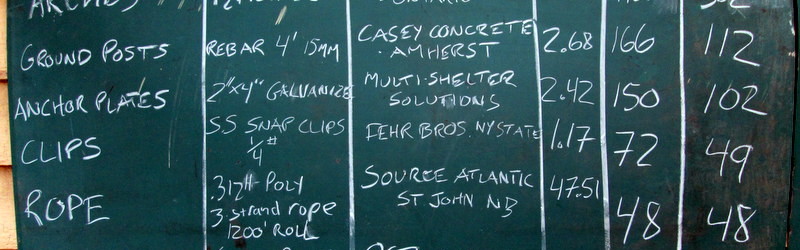 ARCHES
GROUND POSTS REBAR 4' 15MM CASEY CONCRETE 2.68 166 112
AMHERST
ANCHOR PLATES 2"x4" GALVANIZE MULTI-SHELTER 2.42 150 102
SOLUTIONS
CLIPS SS SNAP CLIPS FEHR BROS. NY STATE 1.17 72 49
1/4"
ROPE .312" POLY SOURCE ATLANTIC 47.51 48 48
3-strand rope ST JOHN NB
1200' ROLL